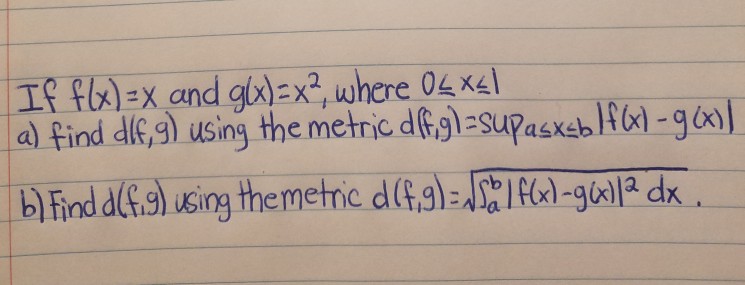 If f(x)=x and g(x)=x², where 0≤x≤1
a) find d(f,g) using the metric d(f,g)=sup a≤x≤b |f(x)-g(x)|
b) Find d(f,g) using the metric d(f,g)=√∫ₐᵇ|f(x)-g(x)|² dx .